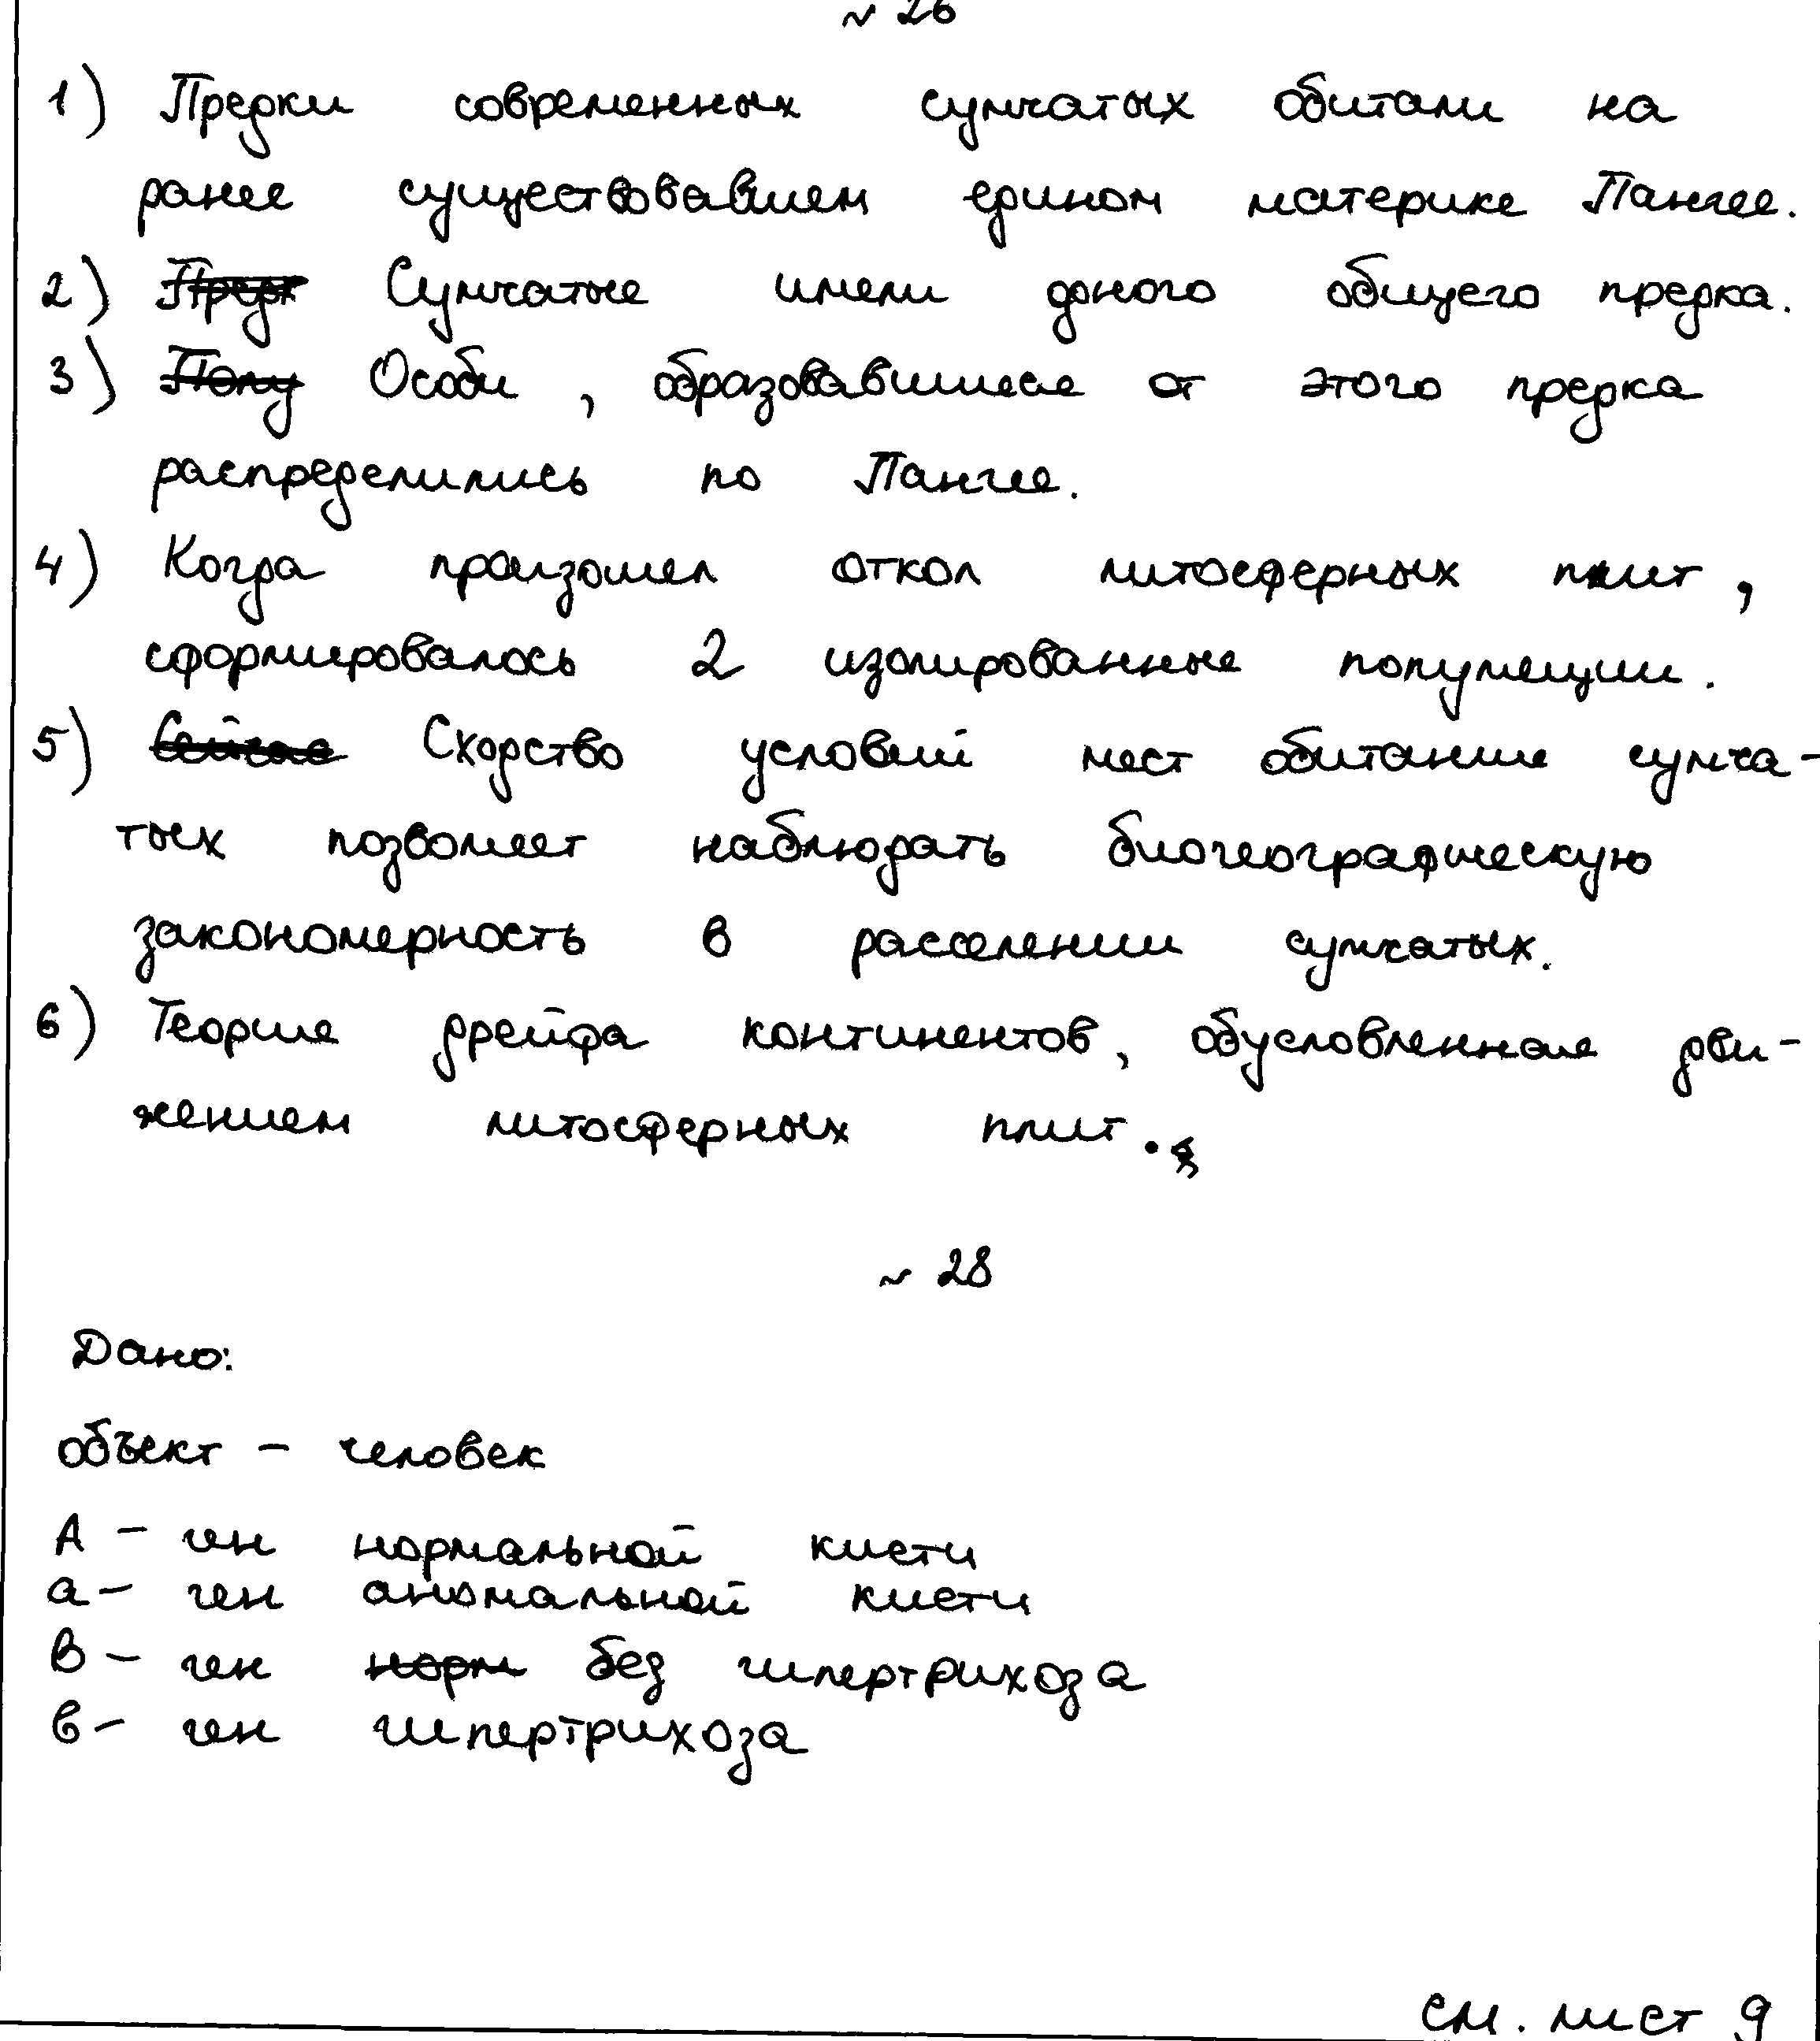 ~ 26
1) Предки современных сумчатых обитали на
ранее существовавшем едином материке Пангее.
2) Сумчатые имели одного общего предка.
3) Особи, образовавшиеся от этого предка
распределились по Пангее.
4) Когда произошел откол литосферных плит,
сформировалось 2 изолированные популяции.
5) Сходство условий мест обитания сумча-
тых позволяет наблюдать биогеографическую
закономерность в расселении сумчатых.
6) Теория дрейфа континентов, обусловленная дви-
жением литосферных плит.
~ 28
Дано:
объект - человек
А - ген нормальной кисти
а - ген аномальной кисти
В - ген без гипертрихоза
в - ген гипертрихоза
см. лист 9